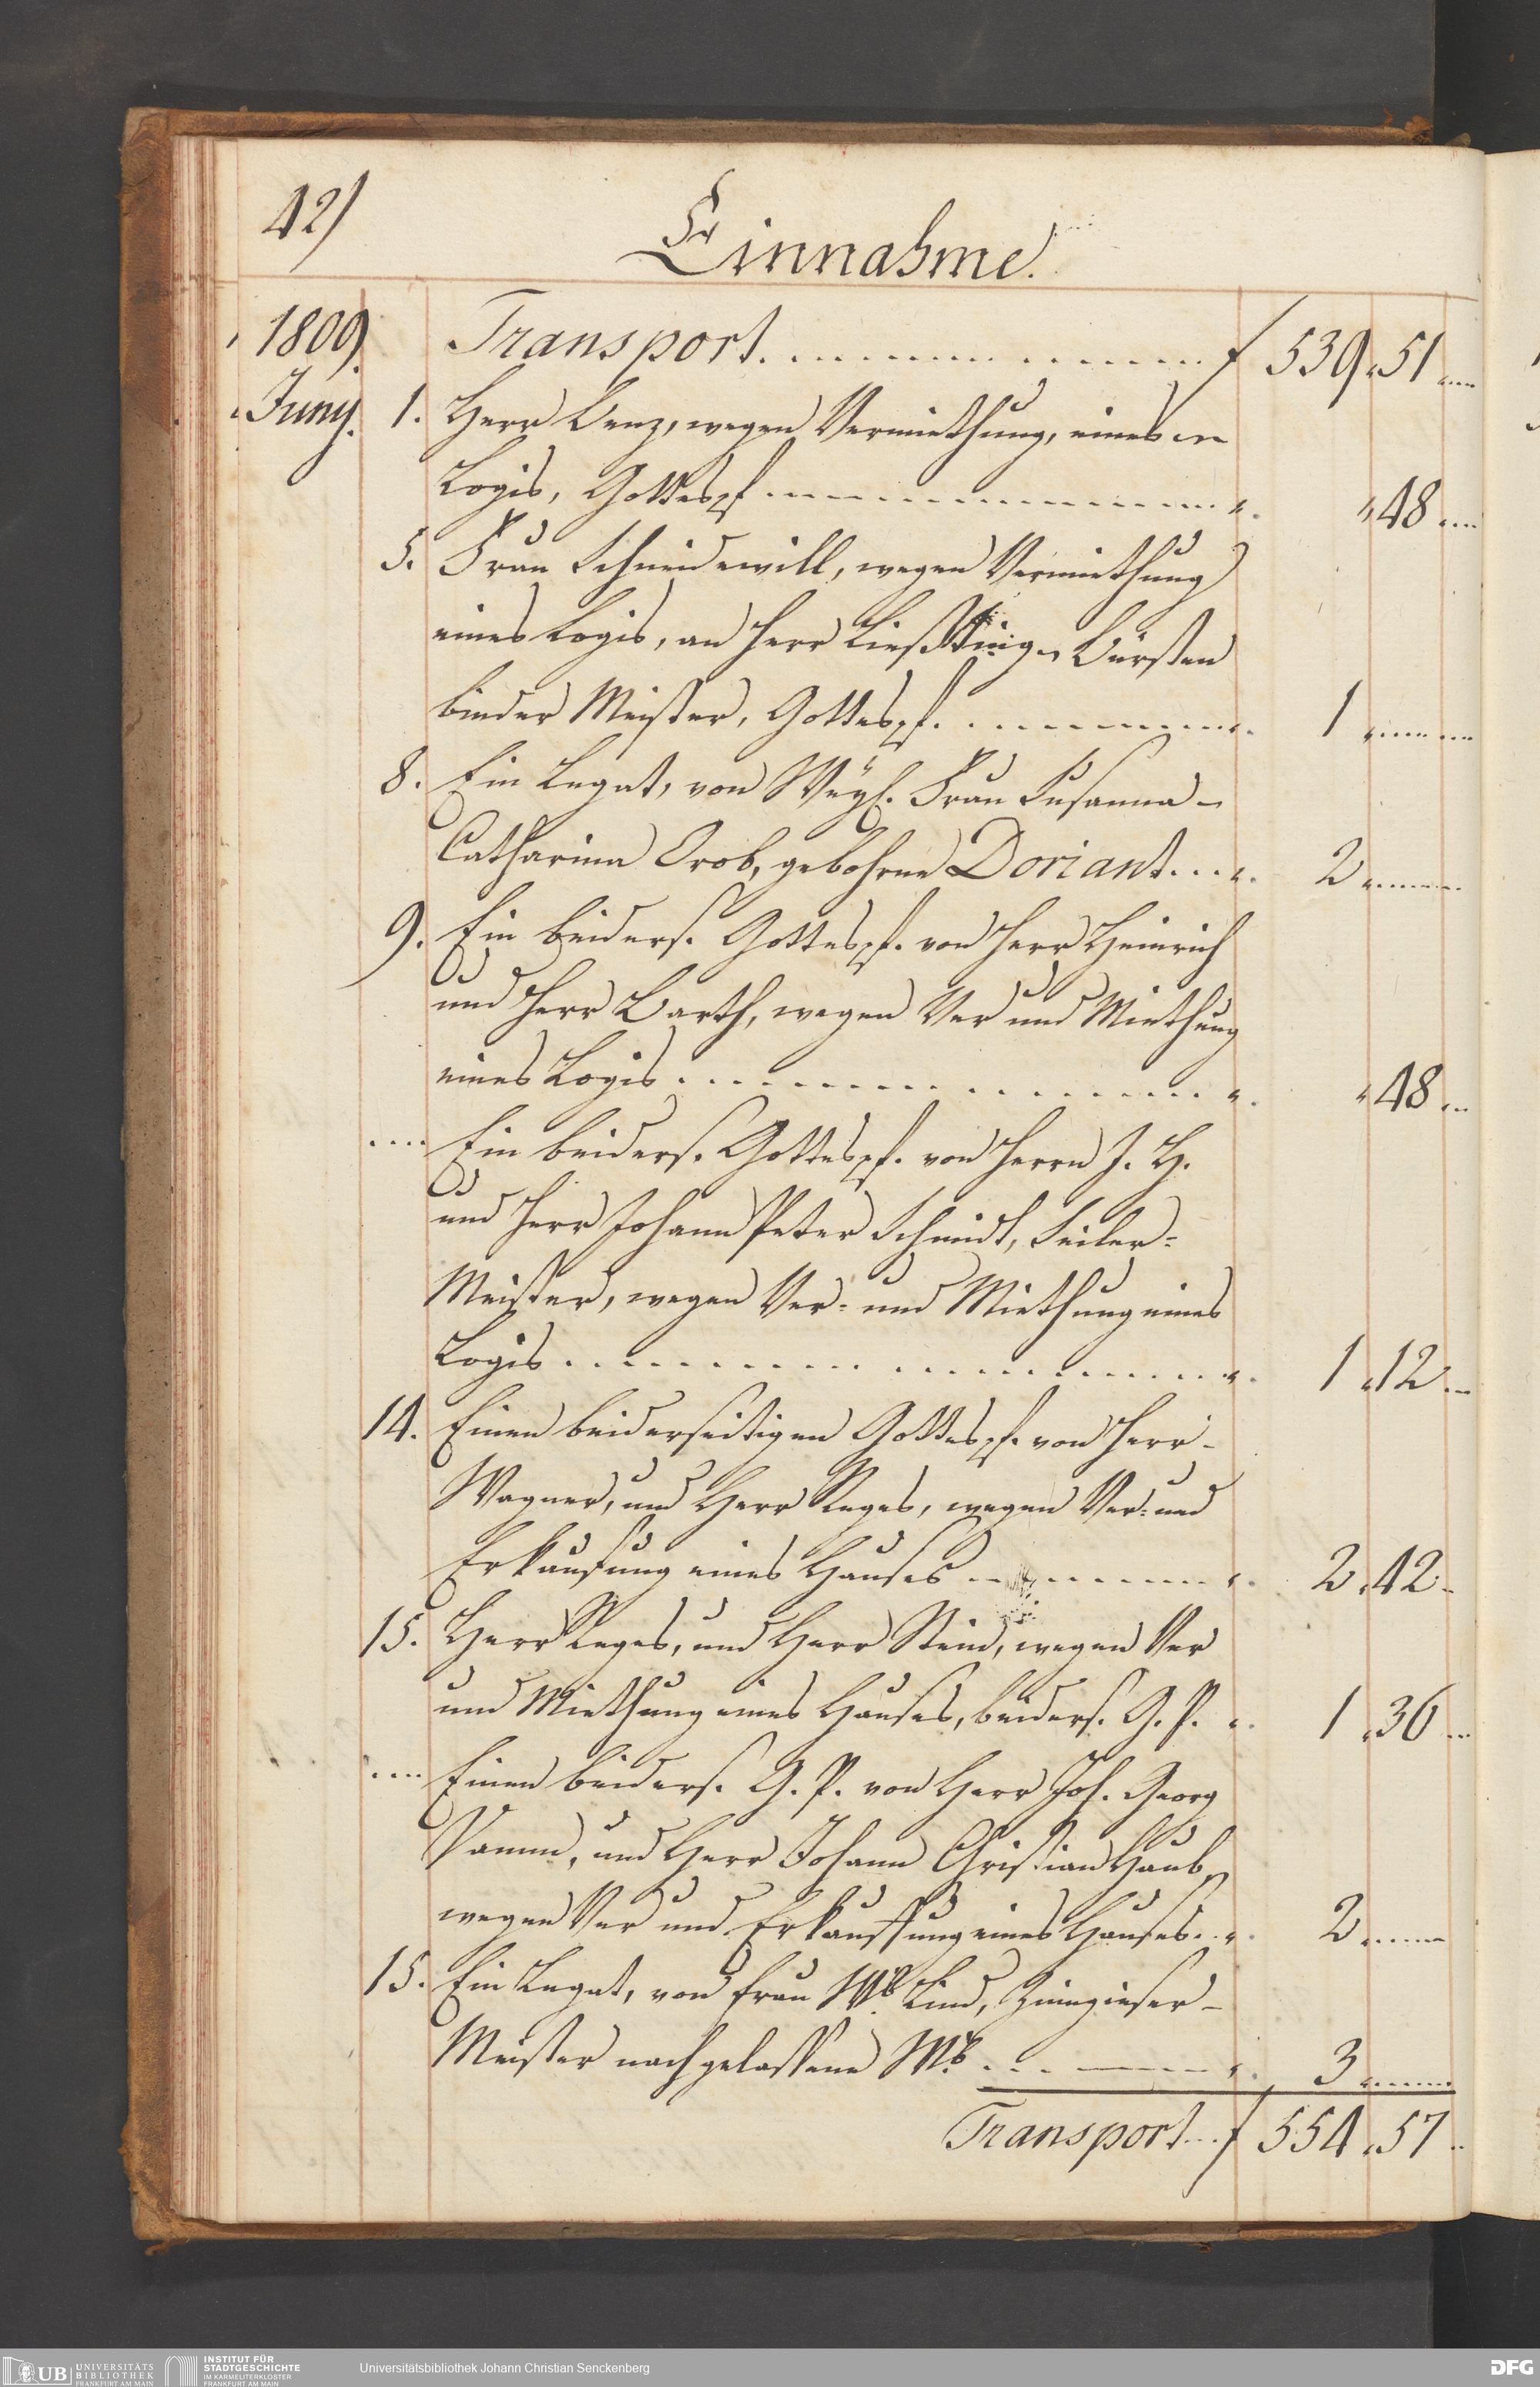 42)
Einnahme.
1809. Transport. f 539 „ 51
Juny. 1. Herr Benz, wegen Vermiethung, eines
Logis, Gottespf. „ 48
5. Frau Schneidewill, wegen Vermiethung
eines Logis, an Herr Bürsten
binder Meister, Gottespf. 1
8. Ein Legat, von Weyl. Frau Susanna
Catharina Orob, gebohrne Doriant. 2
9. Ein beiders. Gottespf. von Herr Heinrich
und Herr Barth, wegen Ver und Miethung
eines Logis „ 48
Ein beiders. Gottespf. von Herrn J. H.
und Herr Johann Peter Schmidt, Seiler=
Meister, wegen Ver= und Miethung eines
Logis 1 „ 12
14. Einen beiderseitigen Gottespf. von Herr
Wagner, und Herr Reges, wegen Ver= und
Erkaufung eines Hauses 2 „ 42
15. Herr Reges, und Herr Stein, wegen Ver
und Miethung eines Hauses, beiders. G. P. 1 „ 36
Einen beiders. G. P. von Herr Joh. Georg
und Herr Johann Christian Haub,
wegen Ver und Erkauffung eines Hauses. 2
15. Ein Legat, von Frau Wb. Lind, Zinngieser
Meister nachgelassene Wb. 3
Transport f 554 „ 57
UB UNIVERSITÄTS BIBLIOTHEK FRANKFURT AM MAIN
INSTITUT FÜR STADTGESCHICHTE IM KARMELITERKLOSTER FRANKFURT AM MAIN
Universitätsbibliothek Johann Christian Senckenberg
DFG